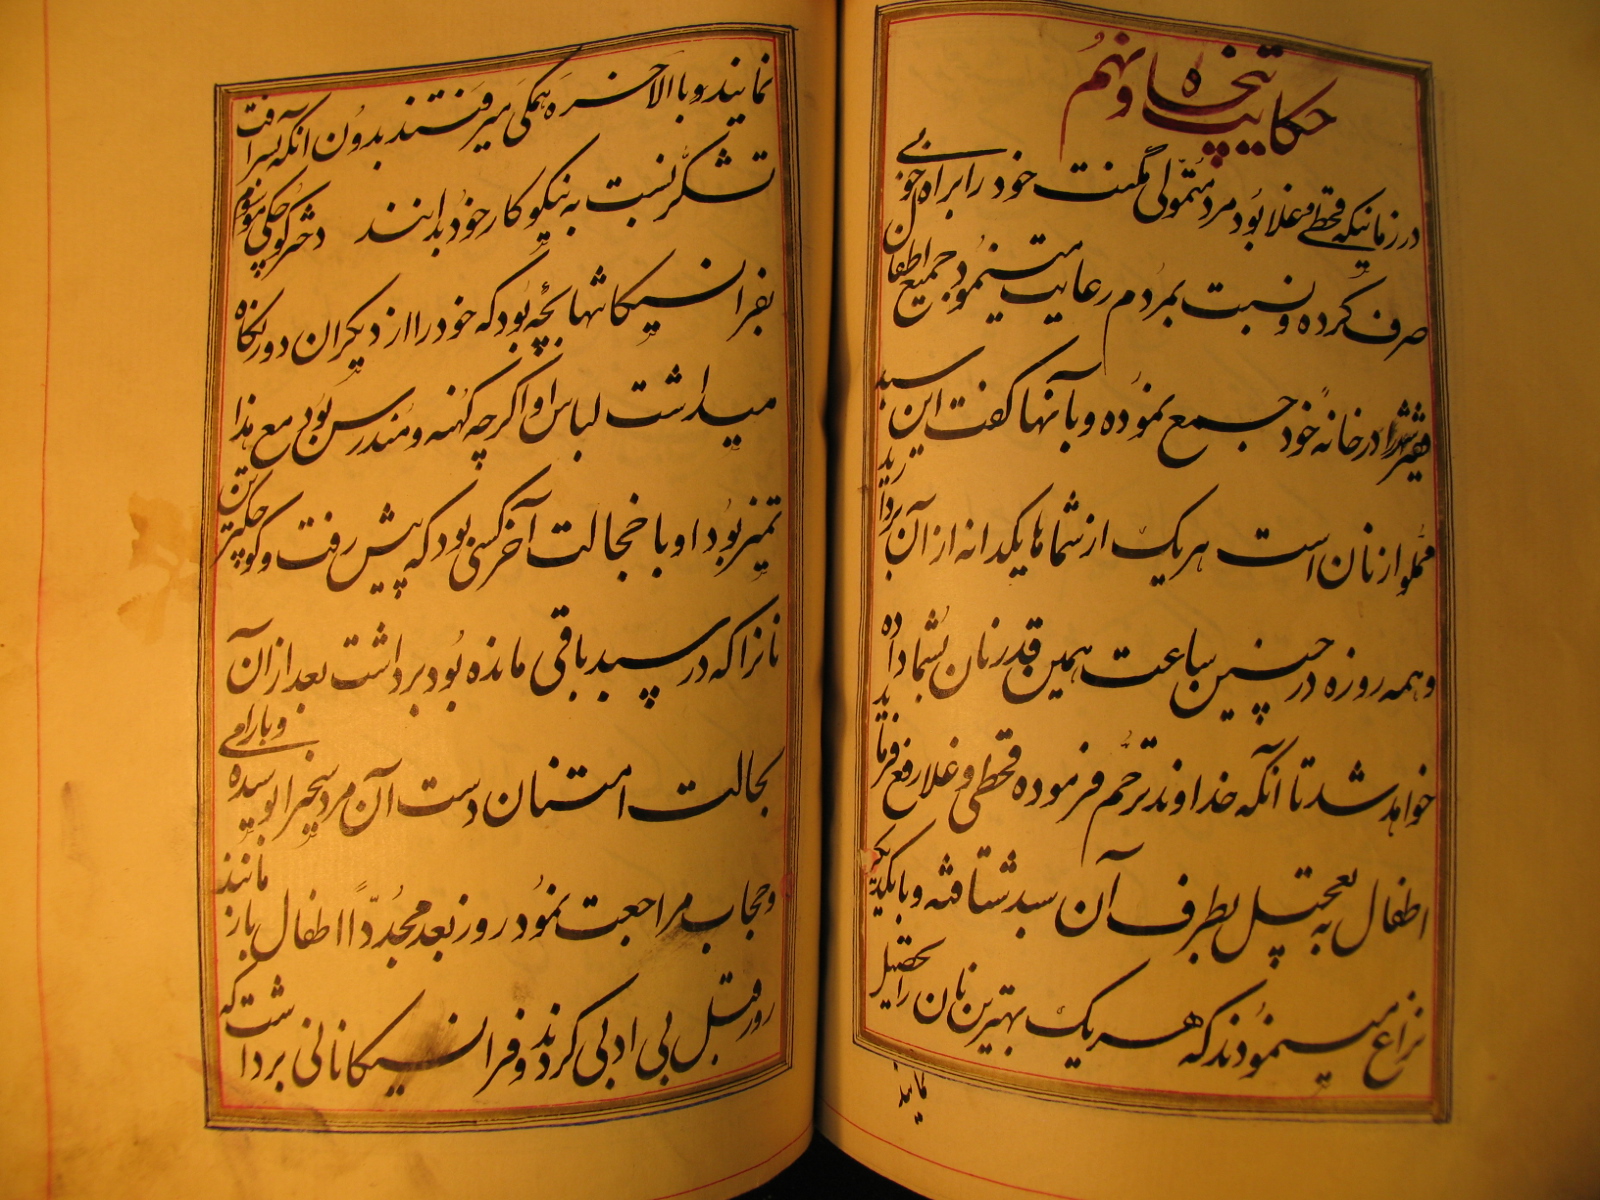 حکایت پنجاه و نهم
در زمانیکه قحطی و غلا بود مرد متمولی مکنت خود را براه خوبی
صرف کرده و نسبت بمردم رعایت مینمود جمیع اطفال
فقیر شهر را در خانهٔ خود جمع نموده و بآنها کفت این سبد
مملو از نان است هر یک از شماها یکدانه از آن بردارید
و همه روزه در چنین ساعت همین قدر نان بشما داده
خواهد شد تا آنکه خداوند ترحم فرموده قحطی و غلا رفع فرماید
اطفال به تعجیل بطرف آن سبد شتافته و با یکدیگر
نزاع مینمودند که هر یک بهترین نان را تحصیل
نمایند
نمایند و بالاخره همکی میرفتند بدون آنکه بسرافت
تشکر نسبت به نیکوکار خود بدانند دختر کوچکی موسوم
بفرانسیکا تنها بچهٔ بود که خود را از دیکران دور نکاه
میداشت لباس او اکرچه کهنه و مندرس بود مع هذا
تمیز بود او با خجالت آخر کسی بود که پیش رفت و کوچکترین
نانرا که در سبد باقی مانده بود برداشت بعد از آن
بحالت امتنان دست آن مرد سخی را بوسیده و بارامی
و حجاب مراجعت نمود روز بعد مجدداً اطفال باز مانند
روز قبل بی ادبی کردند و فرانسیکا نانی برداشت که